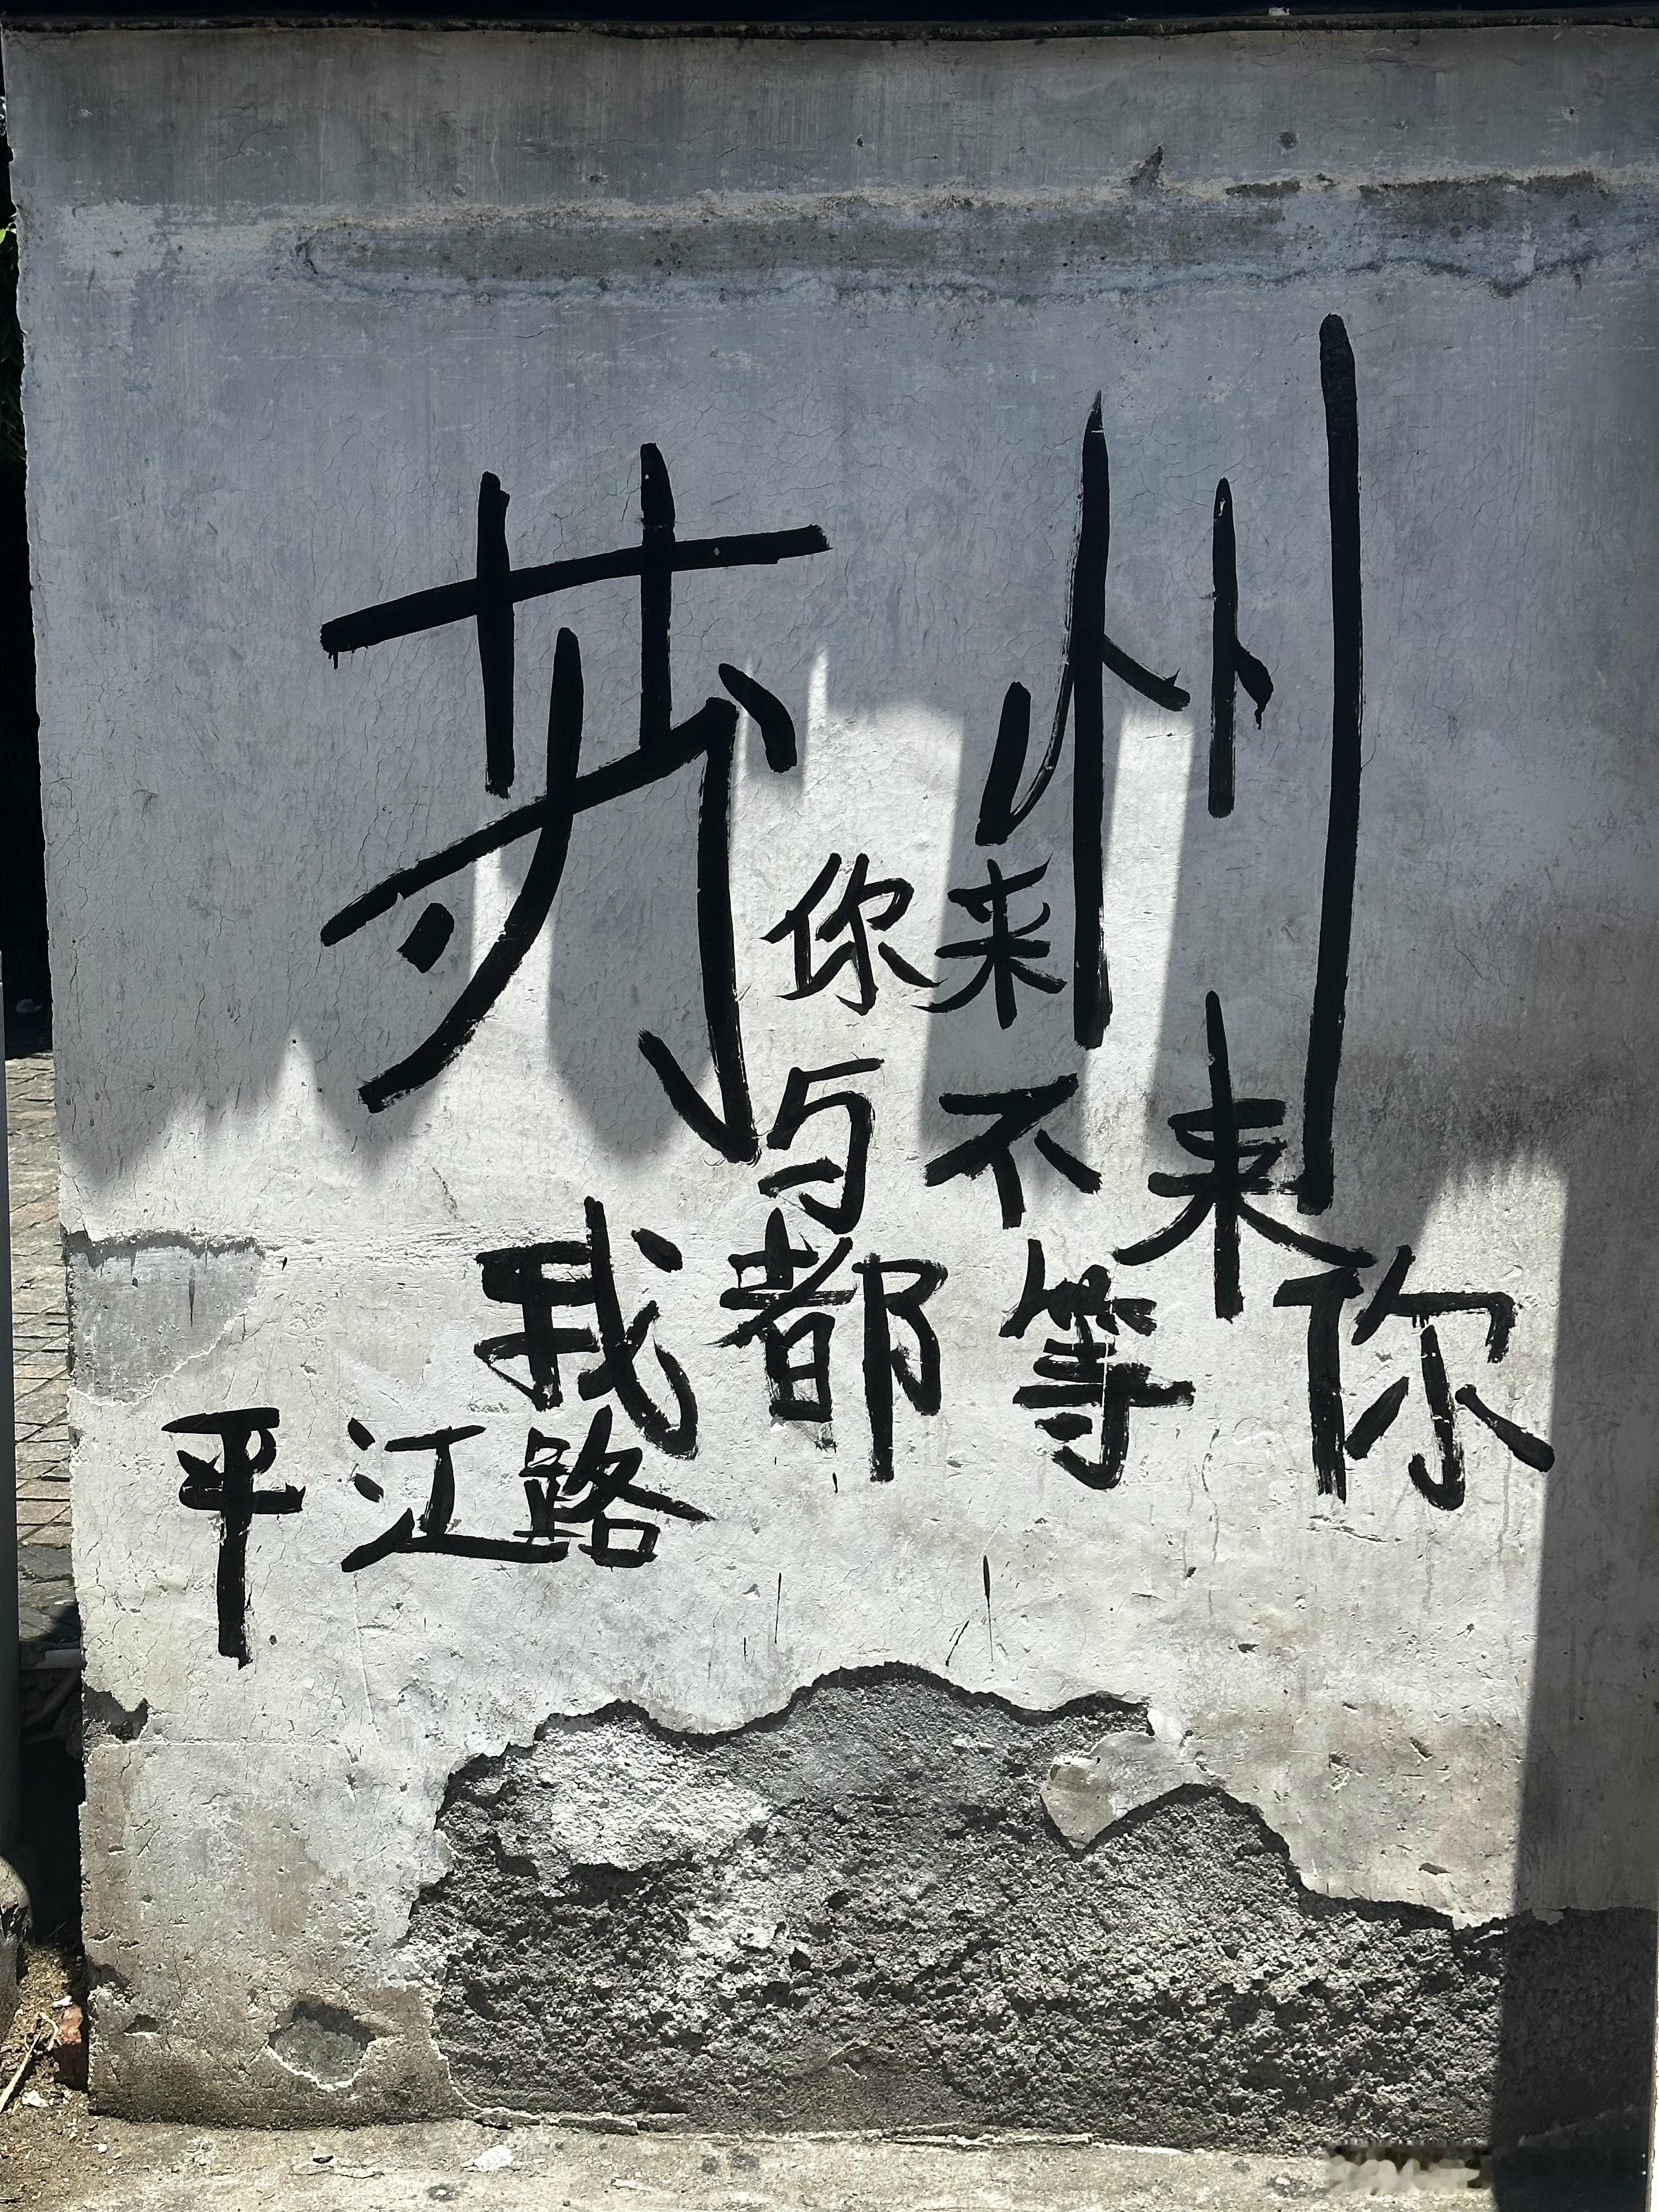 苏州
你来
与不来
我都等你
平江路